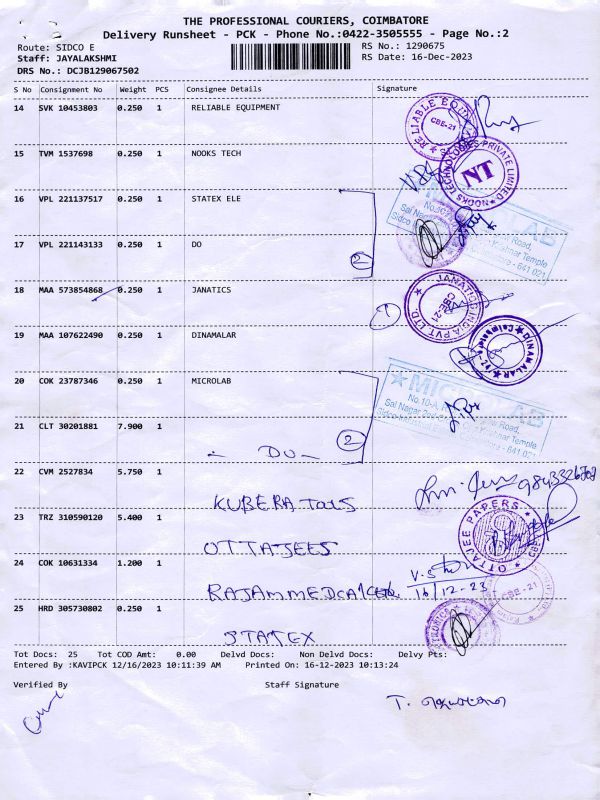 THE PROFESSIONAL COURIERS, COIMBATORE
Delivery Runsheet - PCK - Phone No.:0422-3505555 - Page No.:2
Route: SIDCO E
RS No.: 1290675
Staff: JAYALAKSHMI
RS Date: 16-Dec-2023
DRS No.: DCJB129067502
S No Consignment No Weight PCS Consignee Details Signature
14 SVK 10453803 0.250 1 RELIABLE EQUIPMENT
RELIABLE EQUI
CBE-21
15 TVM 1537698 0.250 1 NOOKS TECH
NOOKS TECHNOLOGIES PRIVATE LIMITED
NT
16 VPL 221137517 0.250 1 STATEX ELE
17 VPL 221143133 0.250 1 DO
2
Road,
Krishnar Temple
641 021
18 MAA 573854868 0.250 1 JANATICS
1
JANATICS INDIA PVT LTD
CBE-21
19 MAA 107622490 0.250 1 DINAMALAR
DINAMALAR
Coimbatore
20 COK 23787346 0.250 1 MICROLAB
No.10-A,
Sai Nagar
Road,
Krishnar Temple
641 021
21 CLT 30201881 7.900 1
- DO -
2
22 CVM 2527834 5.750 1
KUBERA
23 TRZ 310590120 5.400 1
OTTAJEES
OTTAJEE PAPERS
24 COK 10631334 1.200 1
16/12-23
CBE-21
25 HRD 305730802 0.250 1
STATEX
Tot Docs: 25 Tot COD Amt: 0.00 Delvd Docs: Non Delvd Docs: Delvy Pts:
Entered By :KAVIPCK 12/16/2023 10:11:39 AM Printed On: 16-12-2023 10:13:24
Verified By Staff Signature